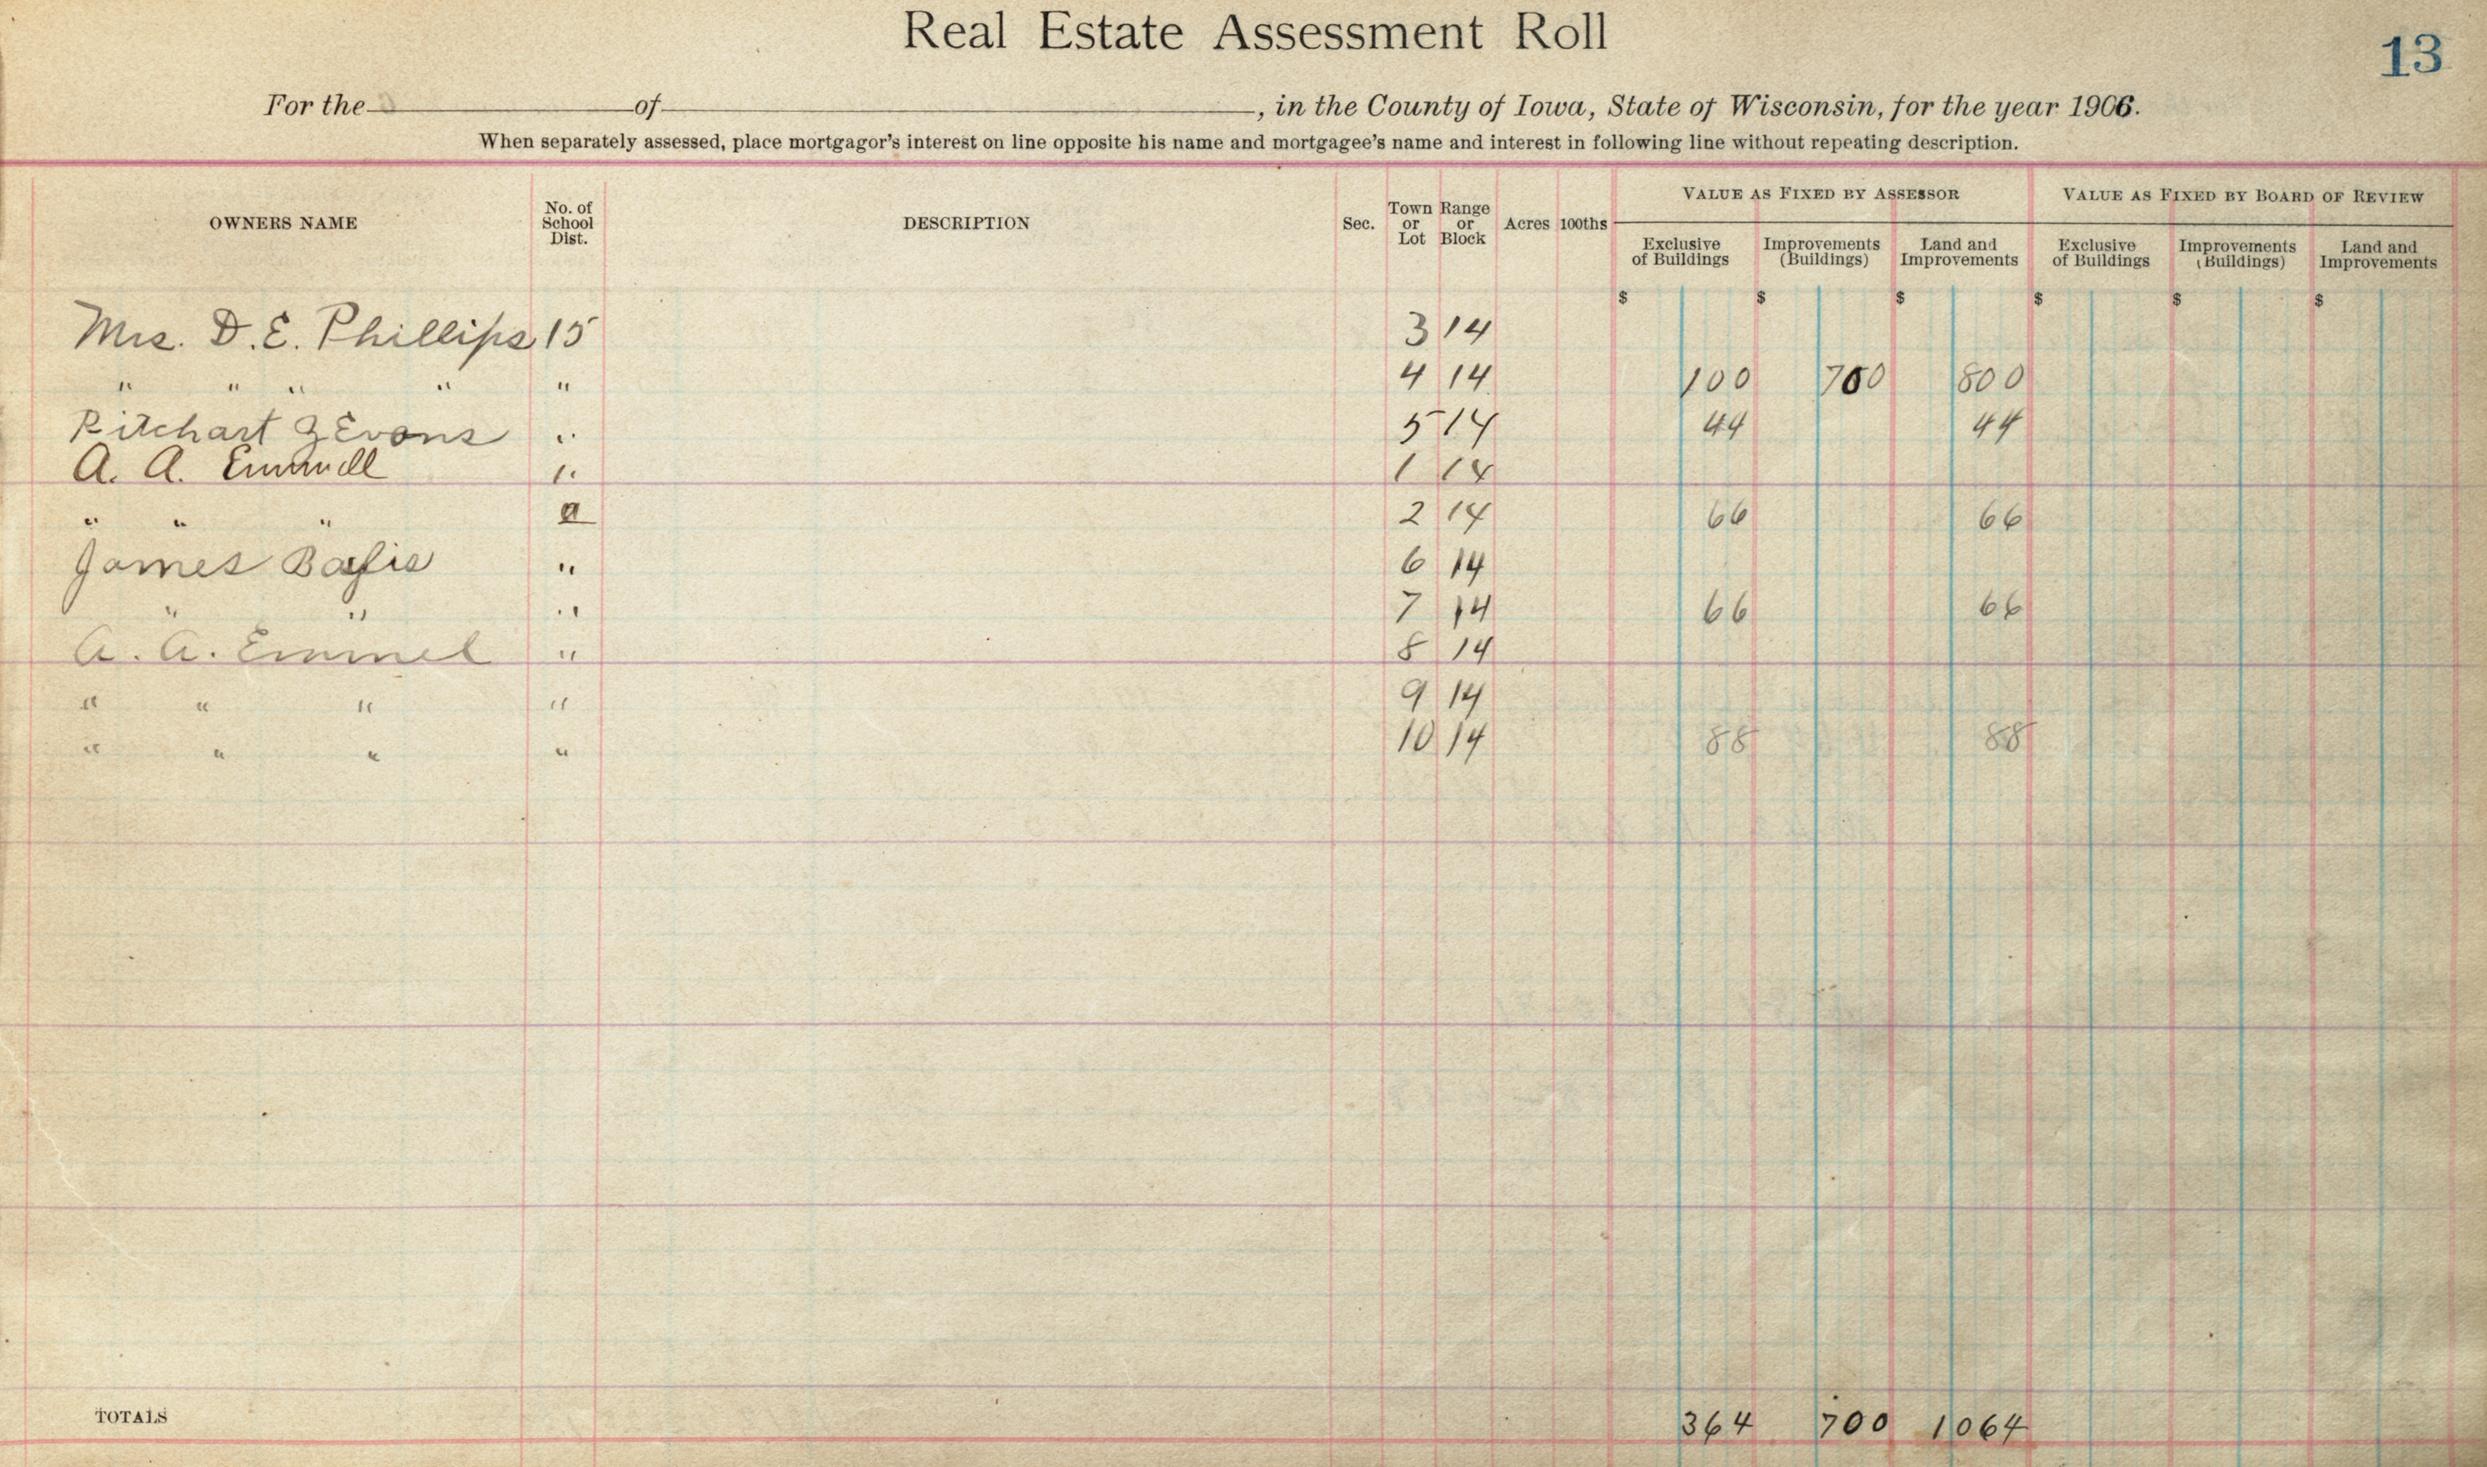 Real Estate Assessment Roll
13
For the of , in the County of Iowa, State of Wisconsin, for the year 1906.
When separately assessed, place mortgagor's interest on line opposite his name and mortgagee's name and interest in following line without repeating description.
OWNERS NAME No. of School Dist. DESCRIPTION Sec. Town or Lot Range or Block Acres 100ths VALUE AS FIXED BY ASSESSOR VALUE AS FIXED BY BOARD OF REVIEW
Exclusive of Buildings Improvements (Buildings) Land and Improvements Exclusive of Buildings Improvements (Buildings) Land and Improvements
$ $ $ $ $ $
Mrs. D. E. Phillips 15 3 14
" " " " " 4 14 100 700 800
Pitchart & Evans " 5 14 44 44
A. A. " 1 14
" " " 2 14 66 66
James " 6 14
" " " 7 14 66 66
A. A. Emmel " 8 14
" " " " 9 14
" " " " 10 14 88 88
TOTALS 364 700 1064